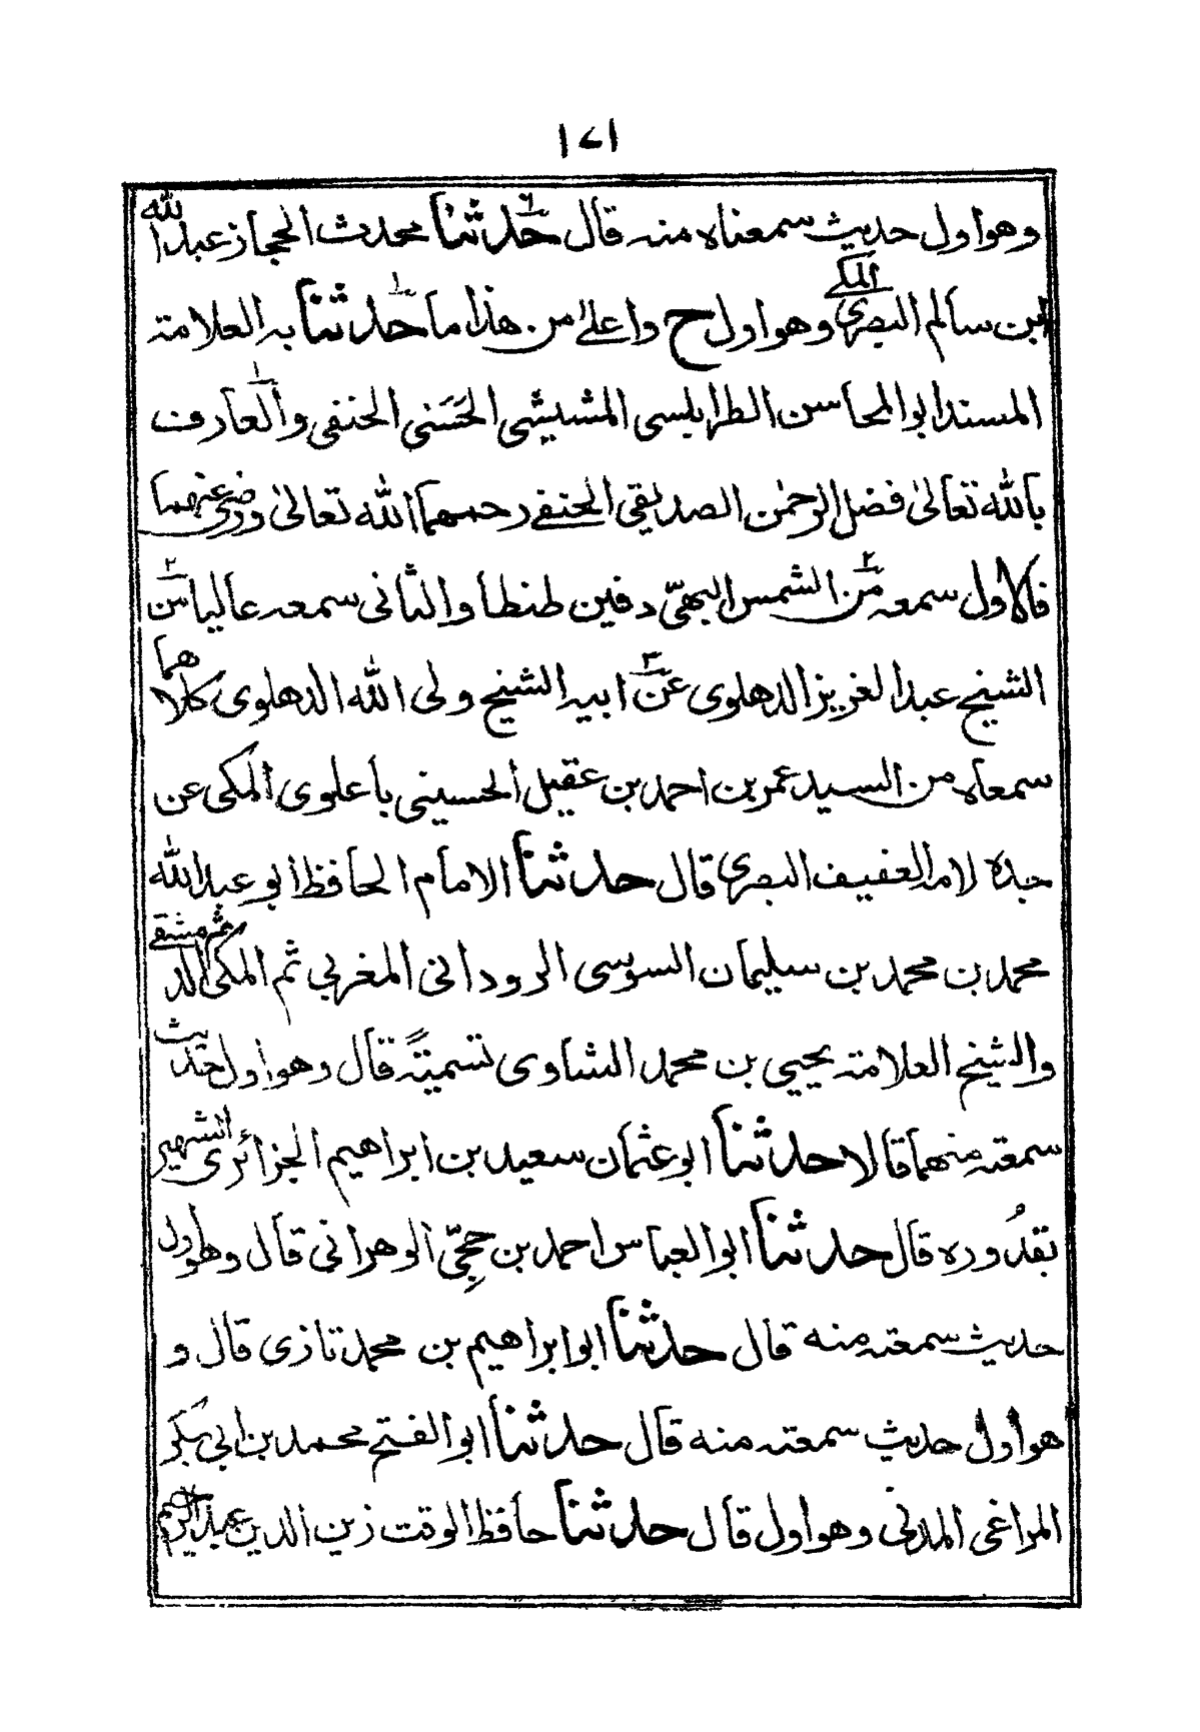 ١٧١
وهو اول حديث سمعناه منه قال حدثنا محدث الحجاز عبد الله
ابن سالم البصري المكي وهو اول ح واعلى من هذا ما حدثنا به العلامة
المسند ابو المحاسن الطرابلسى المشيشى الحَسَنى الحنفى والعارف
بالله تعالىٰ فضل الرحمٰن الصديقى الحنفى رحمهما الله تعالىٰ ورضى عنهما
فالاول سمعه من الشمس البهيّ دفين طنطا والثانى سمعه عاليا من
الشيخ عبد العزيز الدهلوى عن ابيه الشيخ ولى الله الدهلوى كلاهما
سمعاه من السيد عمر بن احمد بن عقيل الحسينى باعلوى المكى عن
جده لامه العفيف البصرى قال حدثنا الامام الحافظ ابو عبد الله
محمد بن محمد بن سليمان السوسى الرودانى المغربي ثم المكى ثم الدمشقى
والشيخ العلامة يحيي بن محمد الشاوى تسميتهً قال وهو اول حديث
سمعته منهما قالا حدثنا ابو عثمان سعيد بن ابراهيم الجزائرى الشهير
بقدُوره قال حدثنا ابو العباس احمد بن حجِّي الوهرانى قال وهو اول
حديث سمعته منه قال حدثنا ابو ابراهيم بن محمد تازى قال و
هو اول حديث سمعته منه قال حدثنا ابو الفتح محمد بن ابى بكر
المراغى المدنى وهو اول قال حدثنا حافظ الوقت زين الدين عبد الرحيم